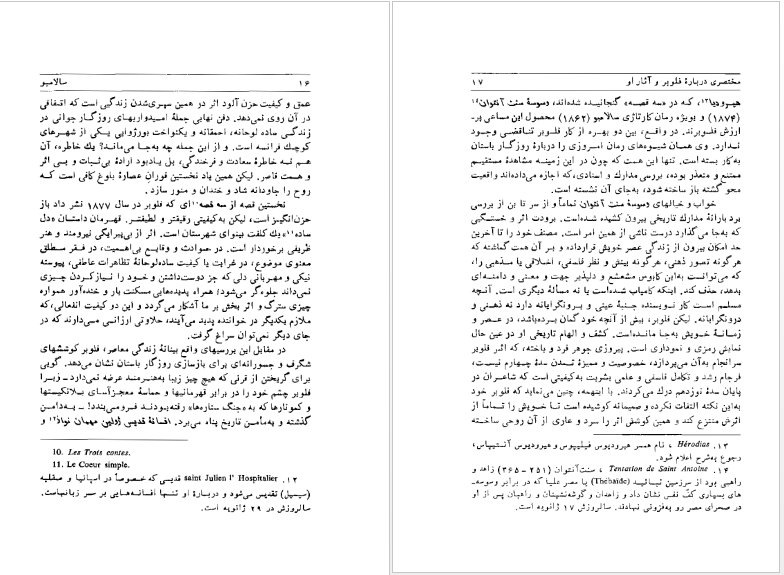 ۱۶ سالامبو
عمق و کیفیت حزن آلود اثر در همین سپری‌شدن زندگیی است که اتفاقی
در آن روی نمی‌دهد. دفن نهایی جملهٔ امیدواریهای روزگار جوانی در
زندگی ساده لوحانه، احمقانه و یکنواخت بورژوایی یکی از شهرهای
کوچک فرانسه است. و از این جمله چه به‌جا می‌ماند؟ یک خاطره، آن
هم نه خاطرهٔ سعادت و فرخندگی، بل یادبود ارادهٔ بی‌ثبات و بی اثر
و همت قاصر. لیکن همین یاد نخستین فوران عصارهٔ بلوغ کافی است که
روح را جاودانه شاد و خندان و منور سازد.
نخستین قصه از سه قصه۱۰ای که فلوبر در سال ۱۸۷۷ نشر داد باز
حزن‌انگیز است، لیکن به‌کیفیتی رقیقتر و لطیفتر. قهرمان داستان «دل
ساده۱۱» یک کلفت بینوای شهرستان است. اثر از بی‌پیرایگی نیرومند و هنر
ظریفی برخوردار است. در حوادث و وقایع بی‌اهمیت، در فقر مطلق
معنوی موضوع، در غرابت یا کیفیت ساده‌لوحانهٔ تظاهرات عاطفی، پیوسته
نیکی و مهربانی دلی که جز دوست‌داشتن و خود را نیازکردن چیزی
نمی‌داند جلوه‌گر می‌شود؛ همراه پدیده‌هایی مسکنت بار و خنده‌آور همواره
چیزی سترگ و اثر بخش بر ما آشکار می‌گردد و این دو کیفیت انفعالی، که
ملازم یکدیگر در خواننده پدید می‌آیند، حلاوتی ارزانی می‌دارند که در
جای دیگر نمی‌توان سراغ گرفت.
در مقابل این بررسیهای واقع بینانهٔ زندگی معاصر، فلوبر کوششهای
شگرف و جسورانه‌ای برای بازسازی روزگار باستان نشان می‌دهد. گویی
برای گریختن از قرنی که هیچ چیز زیبا به‌هنرمند عرضه نمی‌دارد ـ زیرا
فلوبر چشم خود را در برابر قهرمانیها و حماسهٔ معجزآسای بلانکیستها
و کمونارها که به‌«جنگ ستاره‌ها» رفته‌بودند فرومی‌بندد! ـ به‌دامن
گذشته و به‌مأمن تاریخ پناه می‌برد. افسانهٔ قدیس ژولین مهمان نواز۱۲ و
10. Les Trois contes.
11. Le Coeur simple.
۱۲. saint Julien l' Hospitalier قدیسی که خصوصاً در اسپانیا و صقلیه
(سیسیل) تقدیس می‌شود و دربارهٔ او تنها افسانه‌هایی بر سر زبانهاست.
سالروزش در ۲۹ ژانویه است.
مختصری دربارهٔ فلوبر و آثار او ۱۷
هیرودیا۱۳، که در «سه قصه» گنجانیده شده‌اند، وسوسهٔ سنت آنتوان۱۴
(۱۸۷۴) و بویژه رمان کارتاژی سالامبو (۱۸۶۲) محصول این مساعی پر-
ارزش فلوبرند. در واقع، بین دو بهره از کار فلوبر تناقضی وجود
ندارد. وی همان شیوه‌های رمان امروزی را دربارهٔ روزگار باستان
به‌کار بسته است. تنها این هست که چون در این زمینه مشاهدهٔ مستقیم
ممتنع و متعذر بوده، بررسی مدارک و اسنادی، که اجازه می‌داده‌اند واقعیت
محو گشته باز ساخته شود، به‌جای آن نشسته است.
خواب و خیالهای وسوسهٔ سنت آنتوان تماماً و از سر تا بن از بررسی
بردبارانهٔ مدارک تاریخی بیرون کشیده شده‌است. برودت اثر و خستگیی
که به‌جا می‌گذارد درست ناشی از همین امر است. مصنف خود را تا آخرین
حد امکان بیرون از زندگی عصر خویش قرارداده و بر آن همت گماشته که
هرگونه تصور ذهنی، هرگونه بینش و نظر فلسفی، اخلاقی یا مذهبی را،
که می‌توانست به‌این کابوس مشعشع و دلپذیر جهت و معنی و دامنه‌ای
بدهد، حذف کند. اینکه کامیاب شده‌است یا نه مسألهٔ دیگری است. آنچه
مسلم است کار نویسنده جنبهٔ عینی و برونگرایانه دارد نه ذهنی و
درونگرایانه. لیکن فلوبر، بیش از آنچه خود گمان برده‌باشد، در عصر و
زمانهٔ خویش به‌جا مانده‌است. کشف و الهام تاریخی او در عین حال
نمایش رمزی و نموداری است. پیروزی جوهر فرد و یاخته، که اثر فلوبر
سرانجام به‌آن می‌پردازد، خصوصیت و ممیزهٔ تمدن سدهٔ چهارم نیست،
فرجام رشد و تکامل فلسفی و علمی بشریت به‌کیفیتی است که شاعران در
پایان سدهٔ نوزدهم درک می‌کردند. با اینهمه، چنین می‌نماید که فلوبر خود
به‌این نکته التفات نکرده و صمیمانه کوشیده است تا خویش را تماماً از
اثرش منتزع کند و همین کوشش اثر را سرد و عاری از آن روحی ساخته
۱۳. Hérodias ، نام همسر هیرودیوس فیلیپوس و هیرودیوس آنتیپاس،
رجوع به‌شرح اعلام شود.
۱۴. Tentation de Saint Antoine ، سنت‌آنتوان (۲۵۱–۳۶۵) زاهد و
راهبی بود از سرزمین تبائید (Thébaïde) یا مصر علیا که در برابر وسوسه-
های بسیاری کفّ نفس نشان داد و زاهدان و گوشه‌نشینان و راهبان پس از او
در صحرای مصر رو به‌فزونی نهادند. سالروزش ۱۷ ژانویه است.